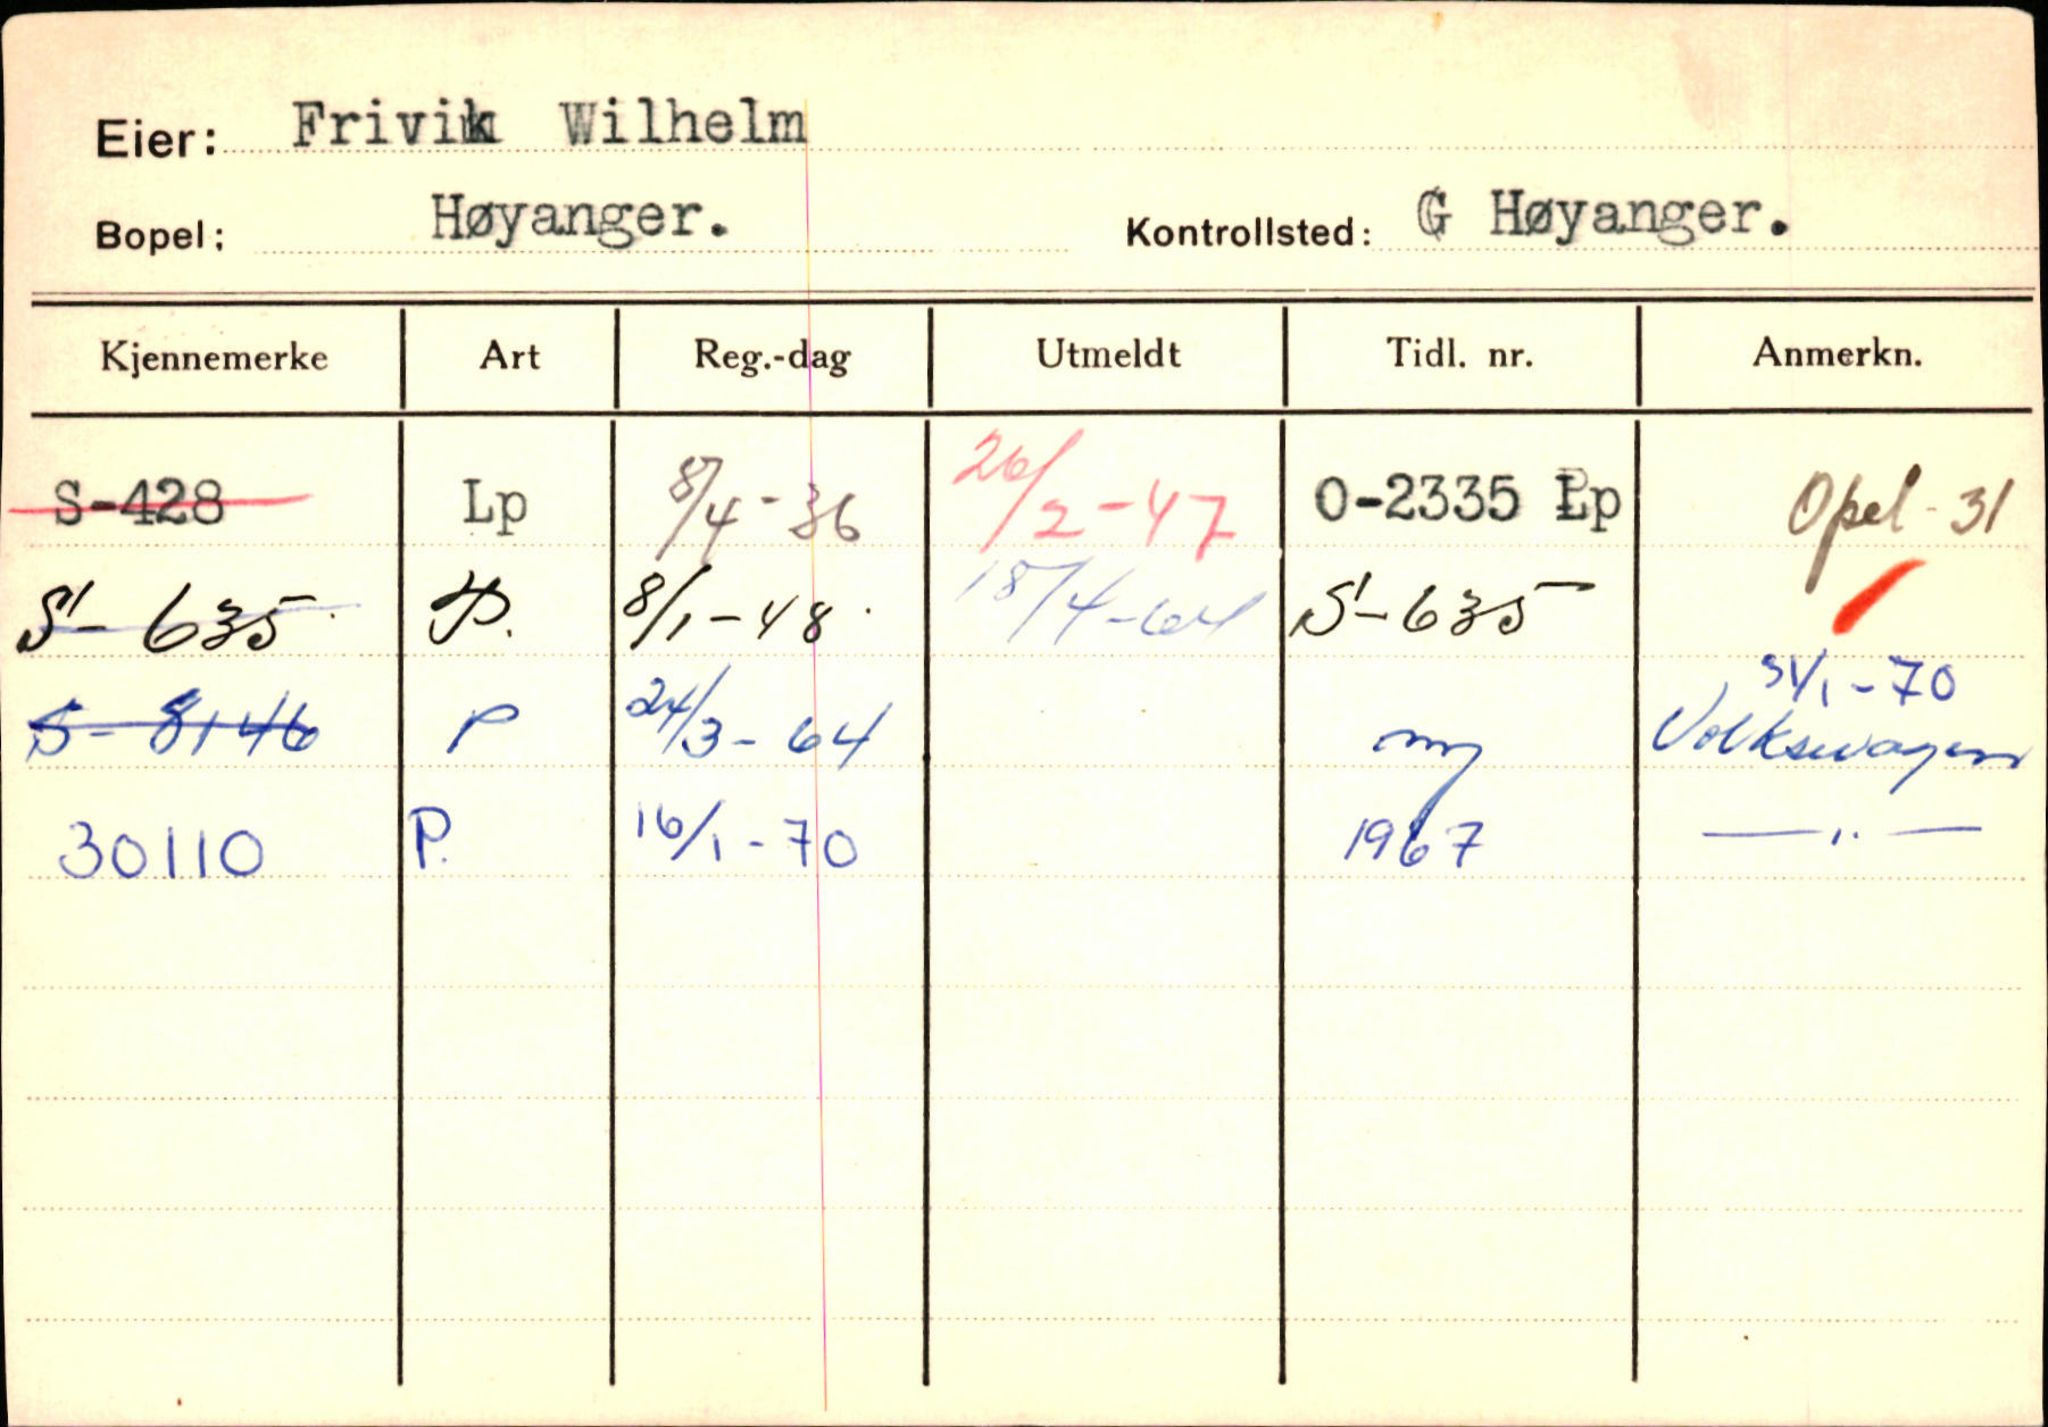 Eier: Frivik Wilhelm
Bopel; Høyanger. Kontrollsted: G Høyanger.
Kjennemerke Art Reg.-dag Utmeldt Tidl. nr. Anmerkn.
S-428 Lp 8/4-36 26/2-47 O-2335 Lp Opel-31
S-635 P. 8/1-48. 18/4-64 S-635
31/1-70
S-8146 P 24/3-64 ny Volkswagen
30110 P. 16/1-70 1967 —"—